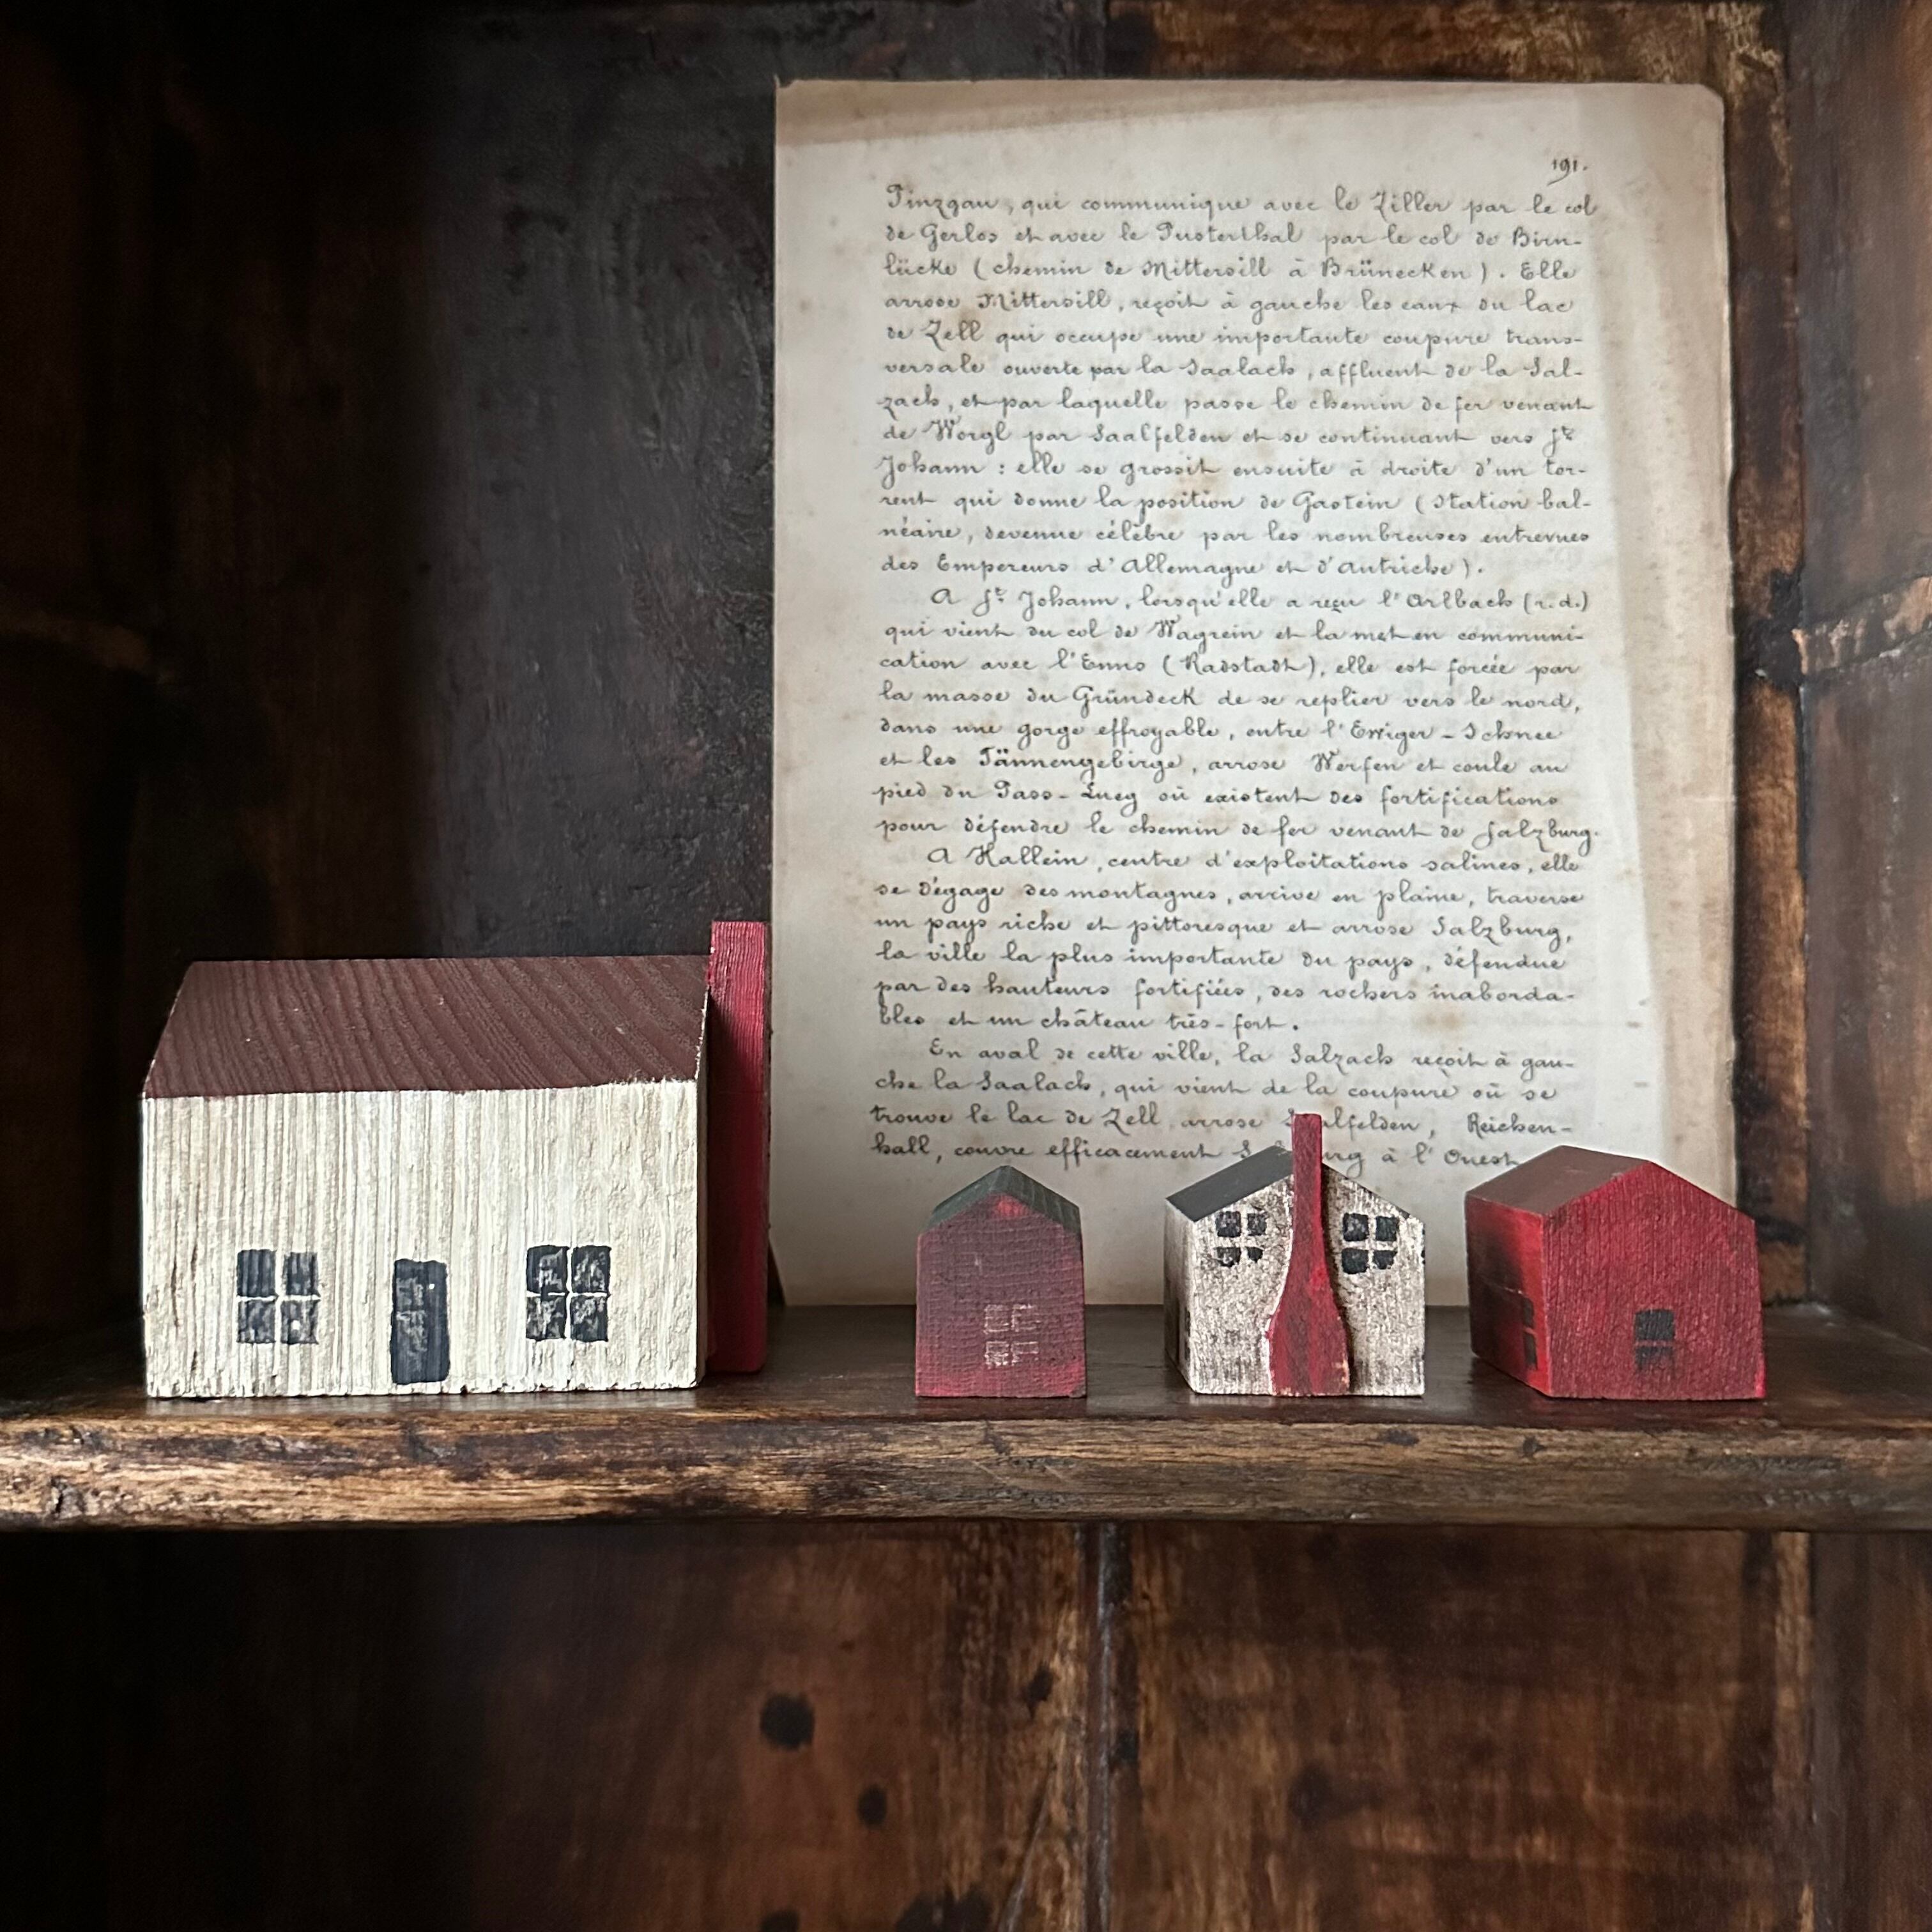 191.
Pinzgau, qui communique avec le Ziller par le col
de Gerlos et avec le Pusterthal par le col de Birn-
lücke (chemin de Mittersill à Brünecken). Elle
arrose Mittersill, reçoit à gauche les eaux du lac
de Zell qui occupe une importante coupure trans-
versale ouverte par la Saalach, affluent de la Sal-
zach, et par laquelle passe le chemin de fer venant
de Worgl par Saalfelden et se continuant vers St
Johann : elle se grossit ensuite à droite d'un tor-
rent qui donne la position de Gastein (Station bal-
néaire, devenue célèbre par les nombreuses entrevues
des Empereurs d'Allemagne et d'Autriche).
A St Johann, lorsqu'elle a reçu l'Arlbach (r.d.)
qui vient du col de Wagrein et la met en communi-
cation avec l'Enns (Radstadt), elle est forcée par
la masse du Gründeck de se replier vers le nord,
dans une gorge effroyable, entre l'Ewiger-Schnee
et les Tännengebirge, arrose Werfen et coule au
pied du Pass-Lueg où existent des fortifications
pour défendre le chemin de fer venant de Salzburg.
A Hallein, centre d'exploitations salines, elle
se dégage des montagnes, arrive en plaine, traverse
un pays riche et pittoresque et arrose Salzburg,
la ville la plus importante du pays, défendue
par des hauteurs fortifiées, des rochers inaborda-
bles et un château très-fort.
En aval de cette ville, la Salzach reçoit à gau-
che la Saalach, qui vient de la coupure où se
trouve le lac de Zell, arrose Saalfelden, Reichen-
hall, couvre efficacement à l'Ouest